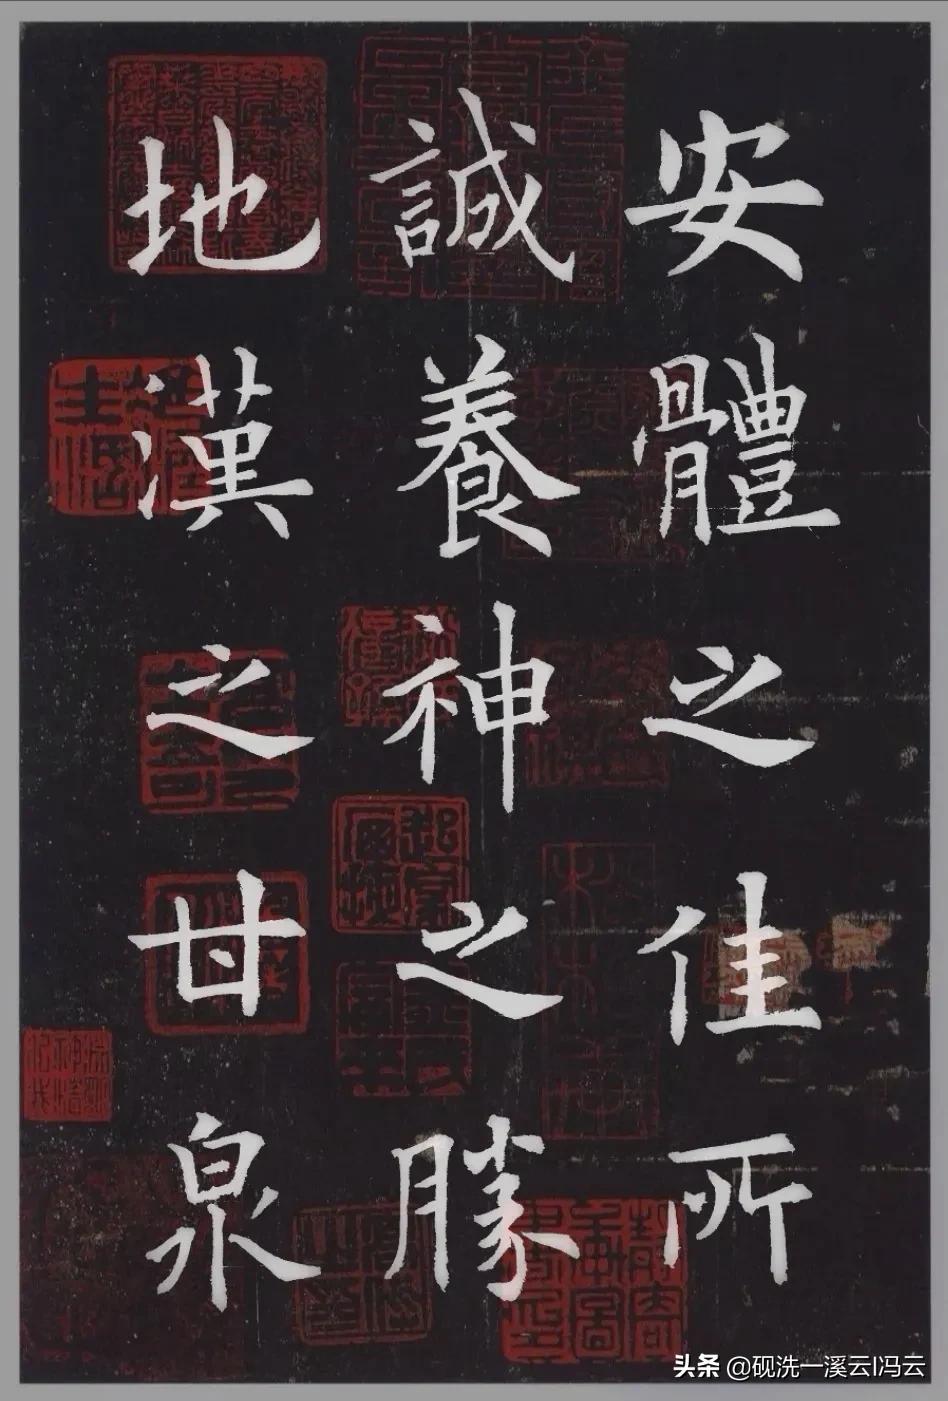 安體之佳所
誠養神之勝
地漢之甘泉
头条 @砚洗一溪云I冯云